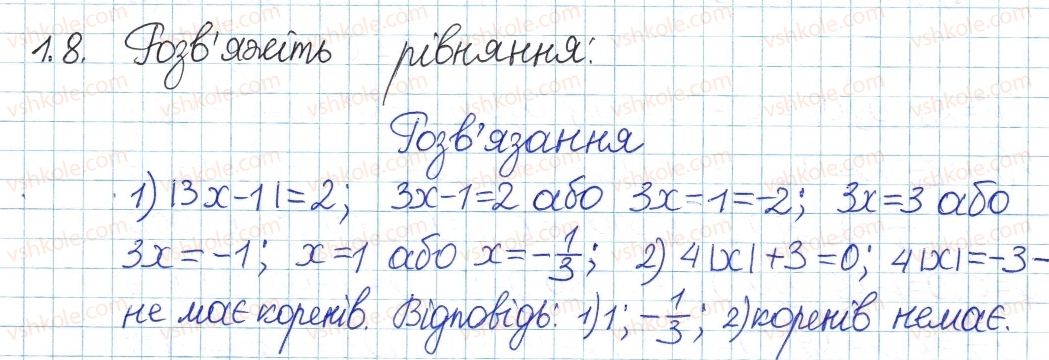 1.8. Розв'яжіть рівняння:
Розв'язання
1) |3x-1|=2; 3x-1=2 або 3x-1=-2; 3x=3 або
3x=-1; x=1 або x=-1/3; 2) 4|x|+3=0; 4|x|=-3-
не має коренів. Відповідь: 1) 1; -1/3; 2) коренів немає.